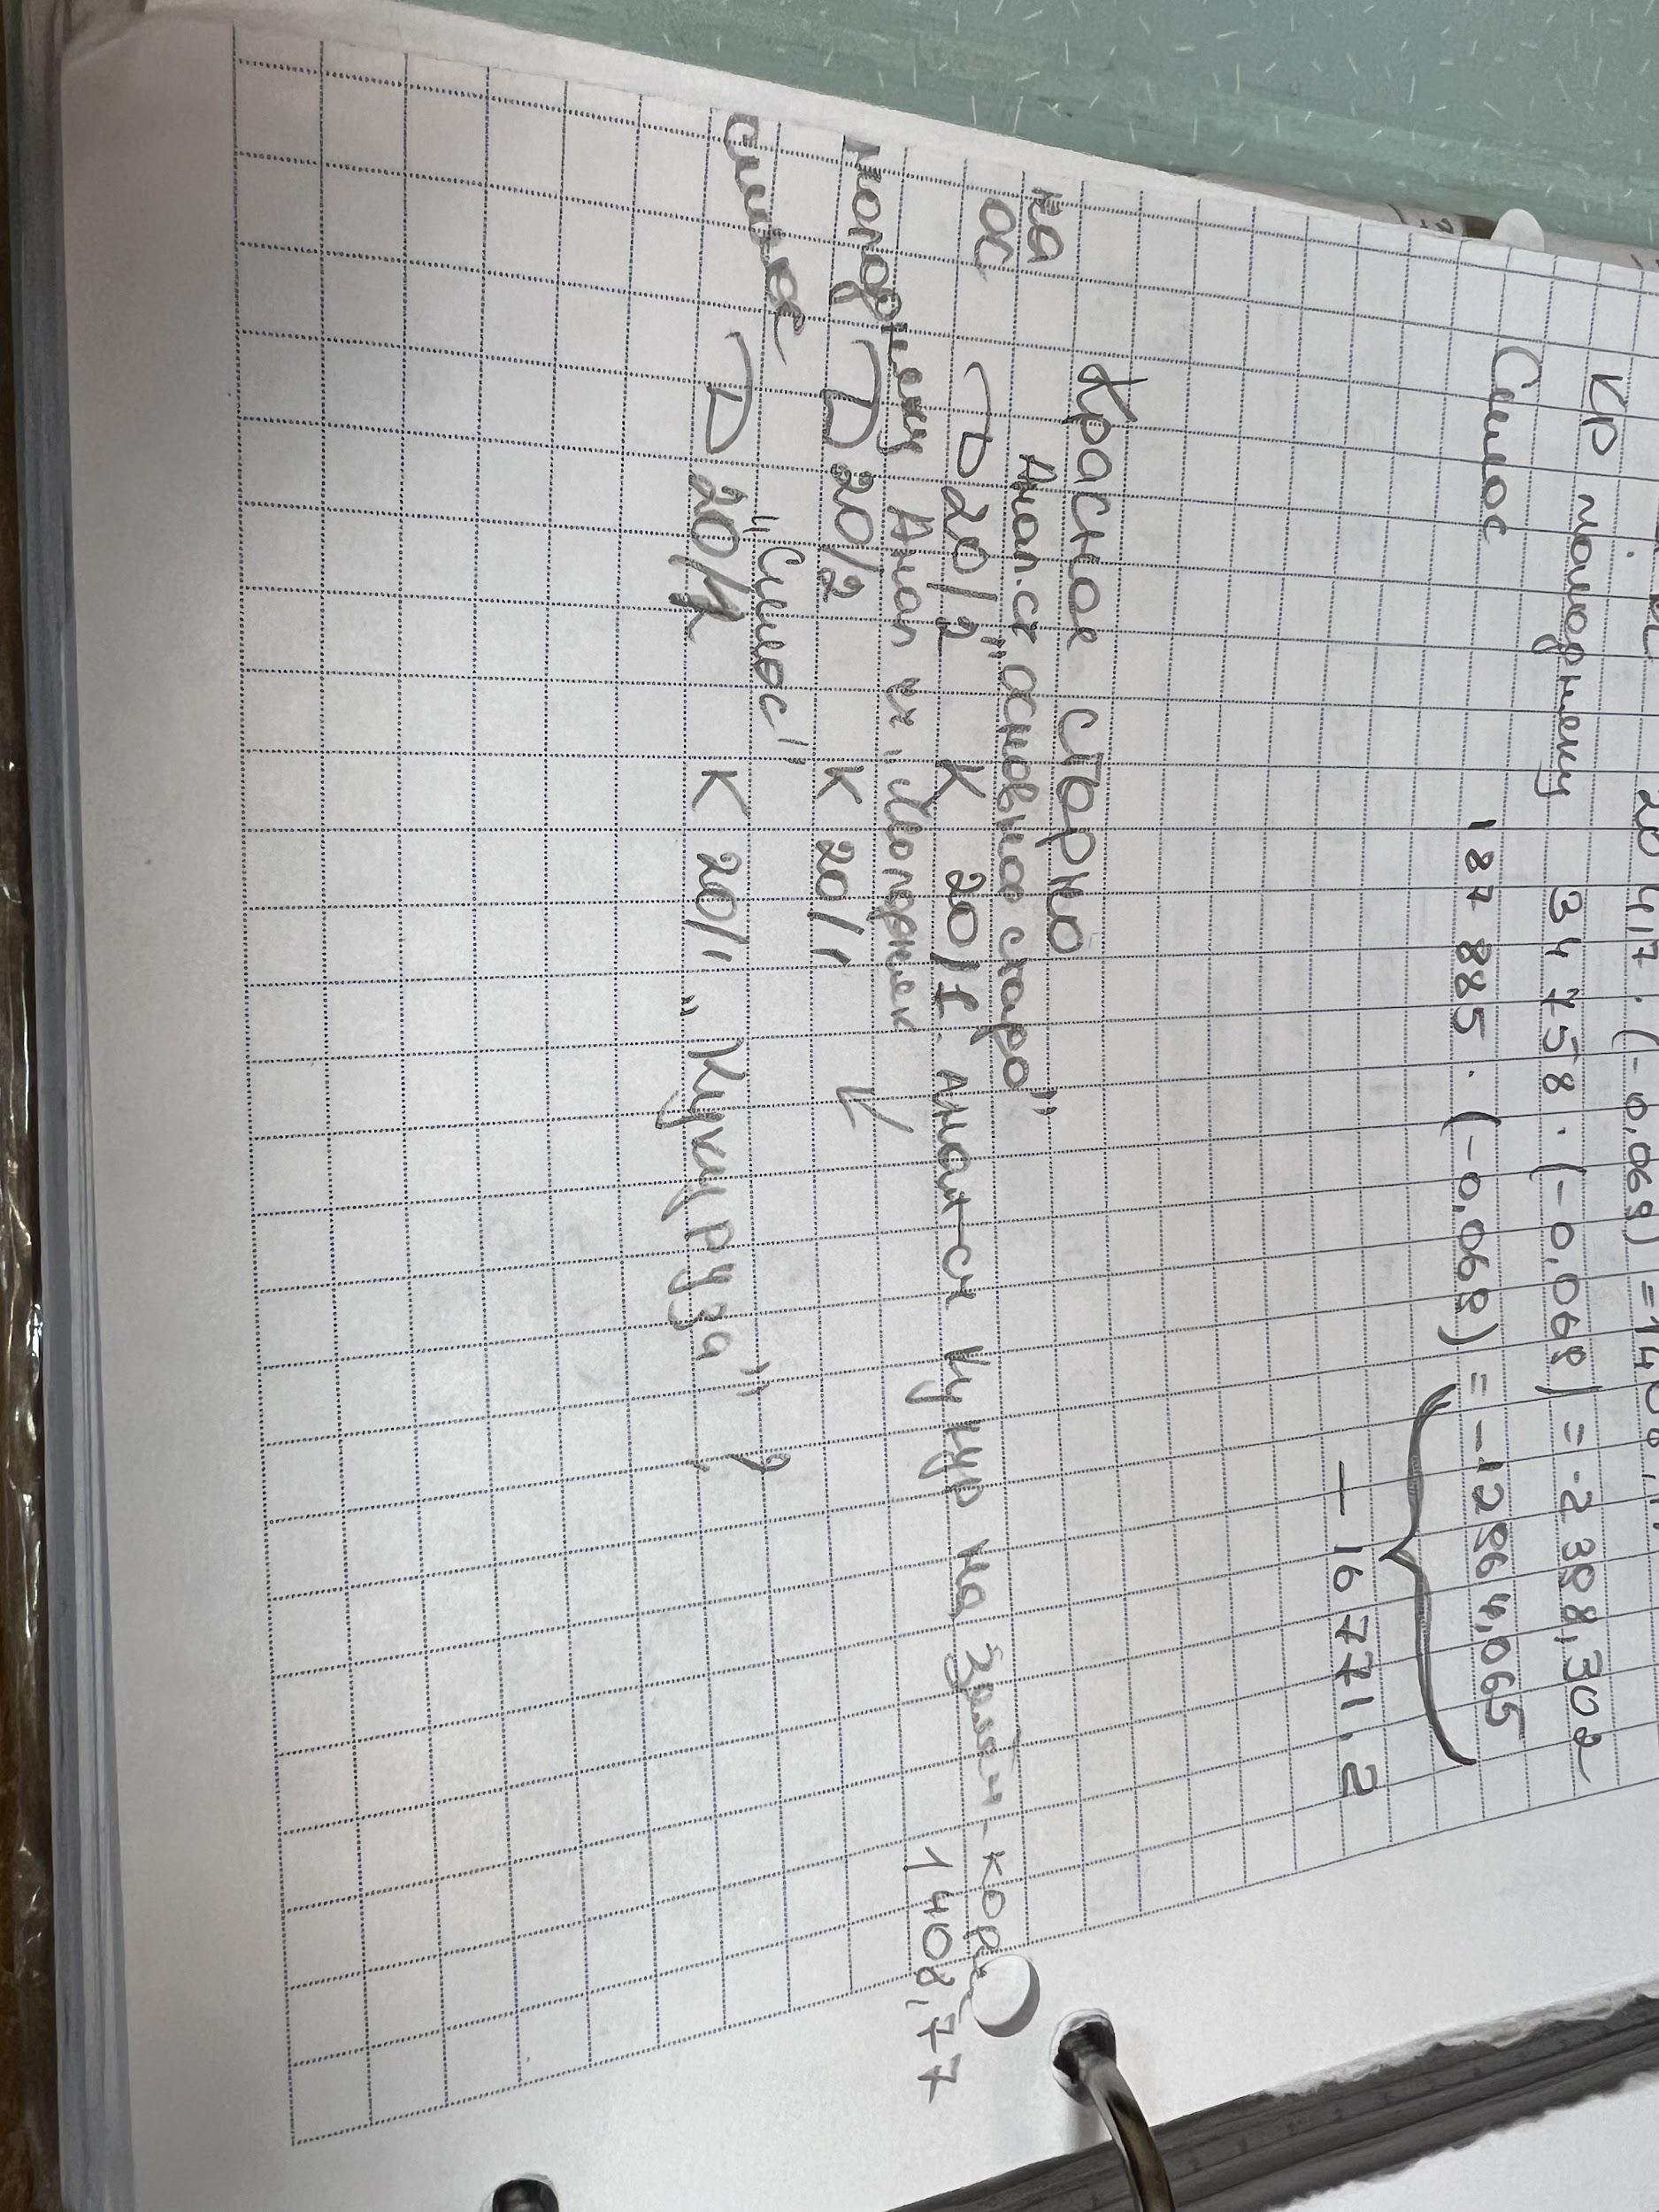 20 417 · (-0,069) = 1408,7
КР молодняку 34 758 · (-0,069) = -2 398,302
Силос 187 885 · (-0,069) = -12964,065
- 16 771,2
Красное сторно
на Анал.сч "основное стадо"
ОС Д 20/2 К 20/1. Анал-сч Кукур на зелён. корм
1408,77
молодняку Анал сч "Молодняк
Д 20/2 К 20/1 V
силос "Силос"
Д 20/1 К 20/1 "Кукуруза"